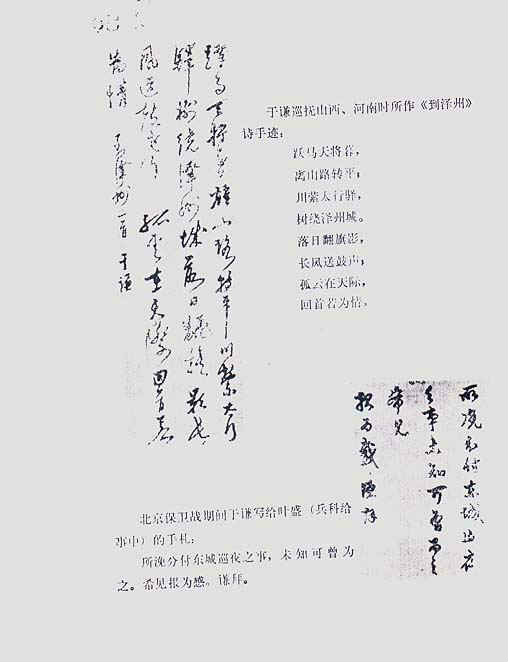 躍馬天將暮離山路轉平川縈太行
驛樹繞澤州城落日翻旗影長
風送鼓聲孤雲在天際回首若
為情
到澤州一首 于謙
于谦巡抚山西、河南时所作《到泽州》
诗手迹：
跃马天将暮，
离山路转平；
川萦太行驿，
树绕泽州城。
落日翻旗影，
长风送鼓声；
孤云在天际，
回首若为情。
所浼分付東城巡夜
之事未知可曾为之
希見
报为感 謙拜
北京保卫战期间于谦写给叶盛（兵科给
事中）的手札：
所浼分付东城巡夜之事，未知可曾为
之。希见报为感。谦拜。